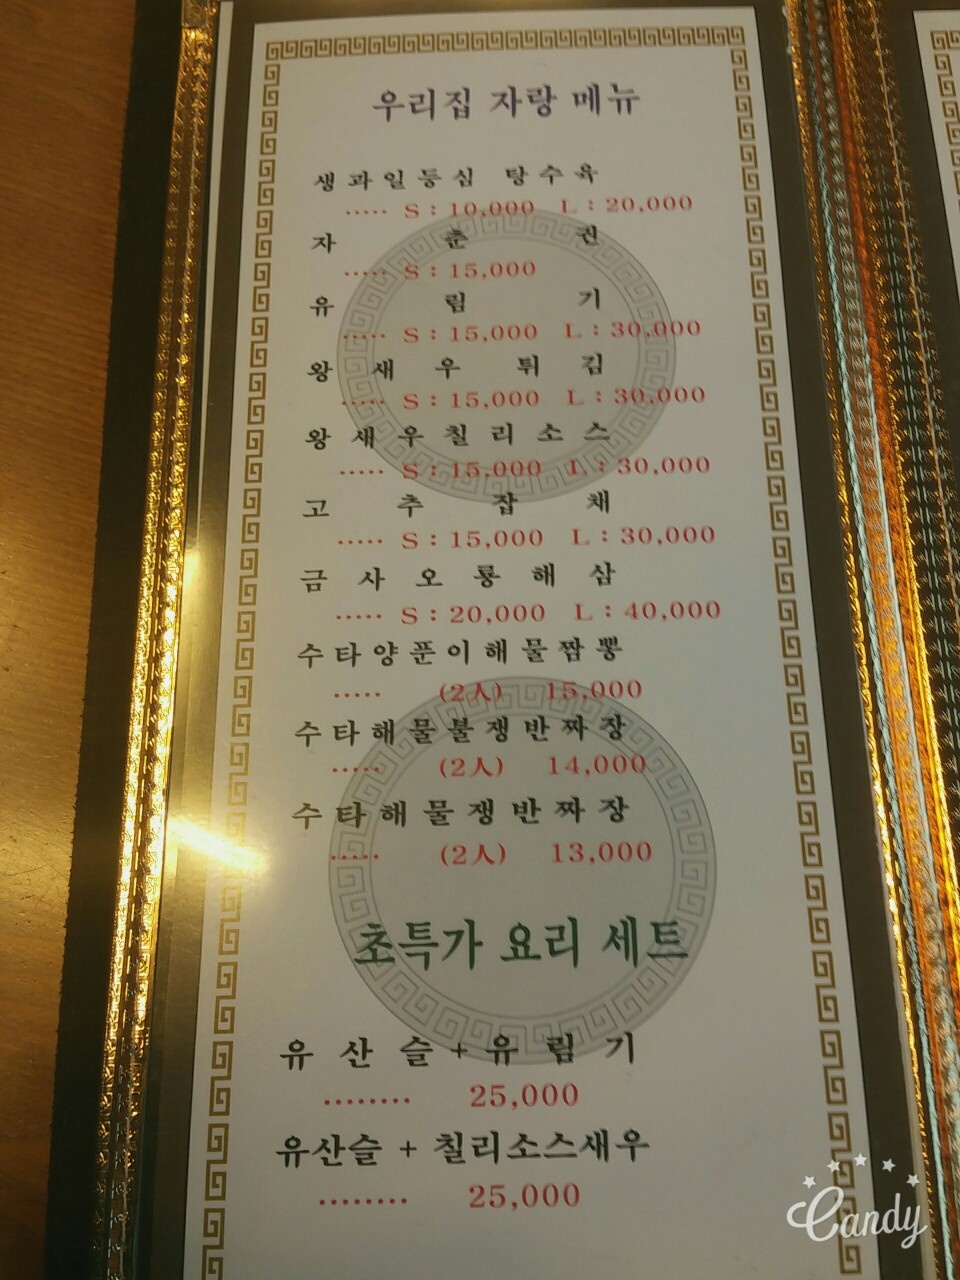 우리집 자랑 메뉴
생과일등심 탕수육
..... S : 10,000 L : 20,000
자춘권
..... S : 15,000
유림기
..... S : 15,000 L : 30,000
왕새우튀김
..... S : 15,000 L : 30,000
왕새우칠리소스
..... S : 15,000 L : 30,000
고추잡채
..... S : 15,000 L : 30,000
금사오룡해삼
..... S : 20,000 L : 40,000
수타양푼이해물짬뽕
..... (2人) 15,000
수타해물불쟁반짜장
..... (2人) 14,000
수타해물쟁반짜장
..... (2人) 13,000
초특가 요리 세트
유산슬 + 유림기
........ 25,000
유산슬 + 칠리소스새우
........ 25,000
Candy